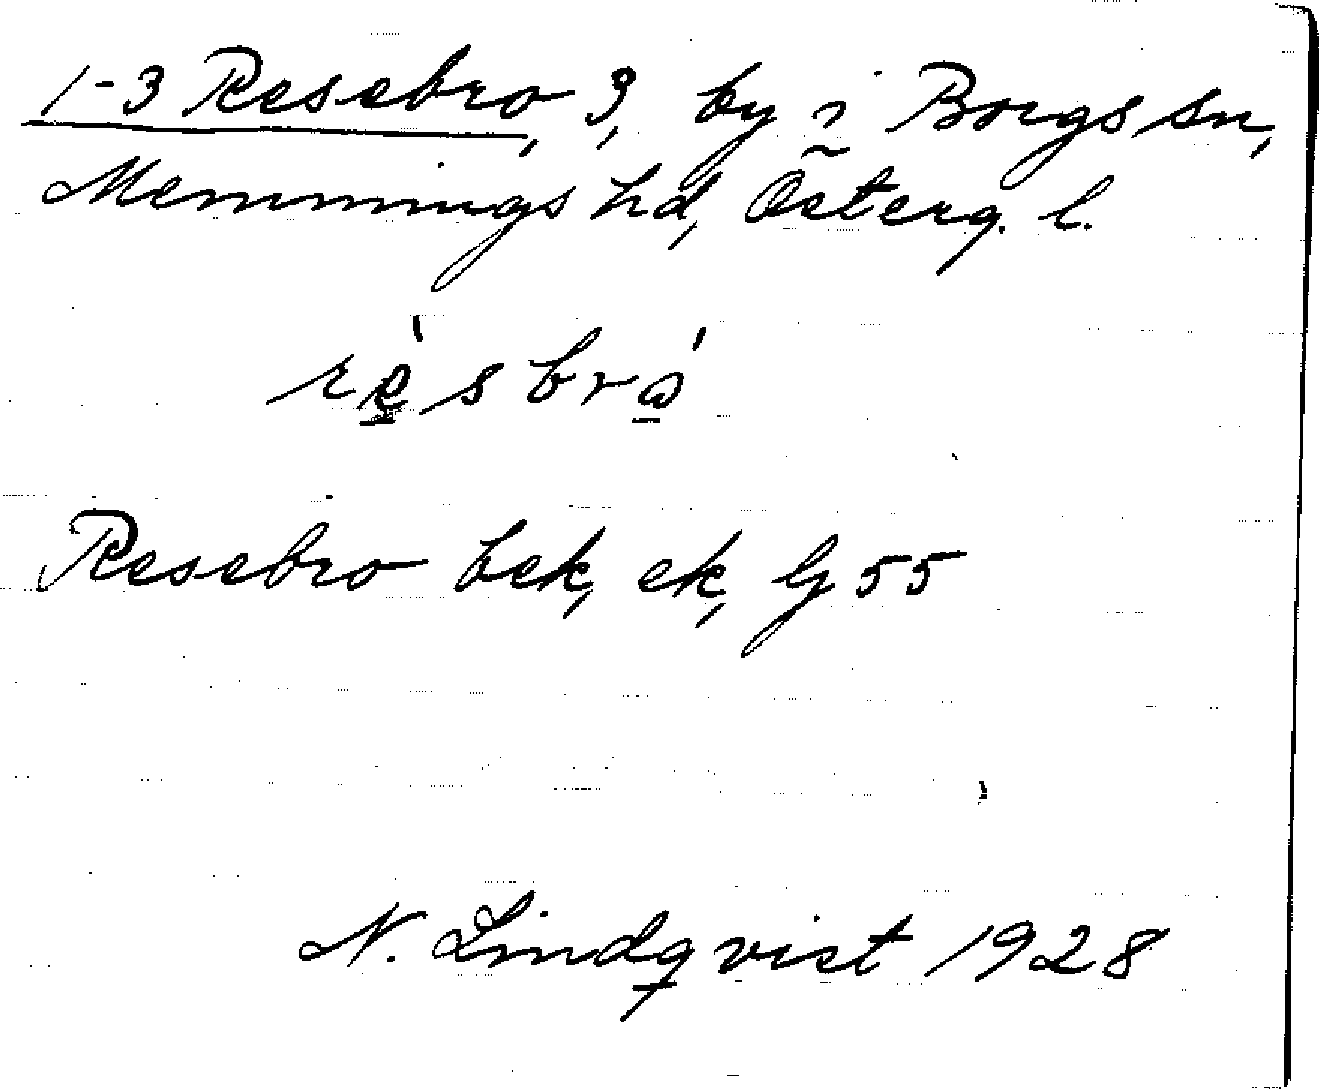 1-3 Resebro, 3, by i Borgs sn,
Memmings hd, Österg. l.
rèsbró
Resebro bek, ek, Gj 55
N. Lindqvist 1928